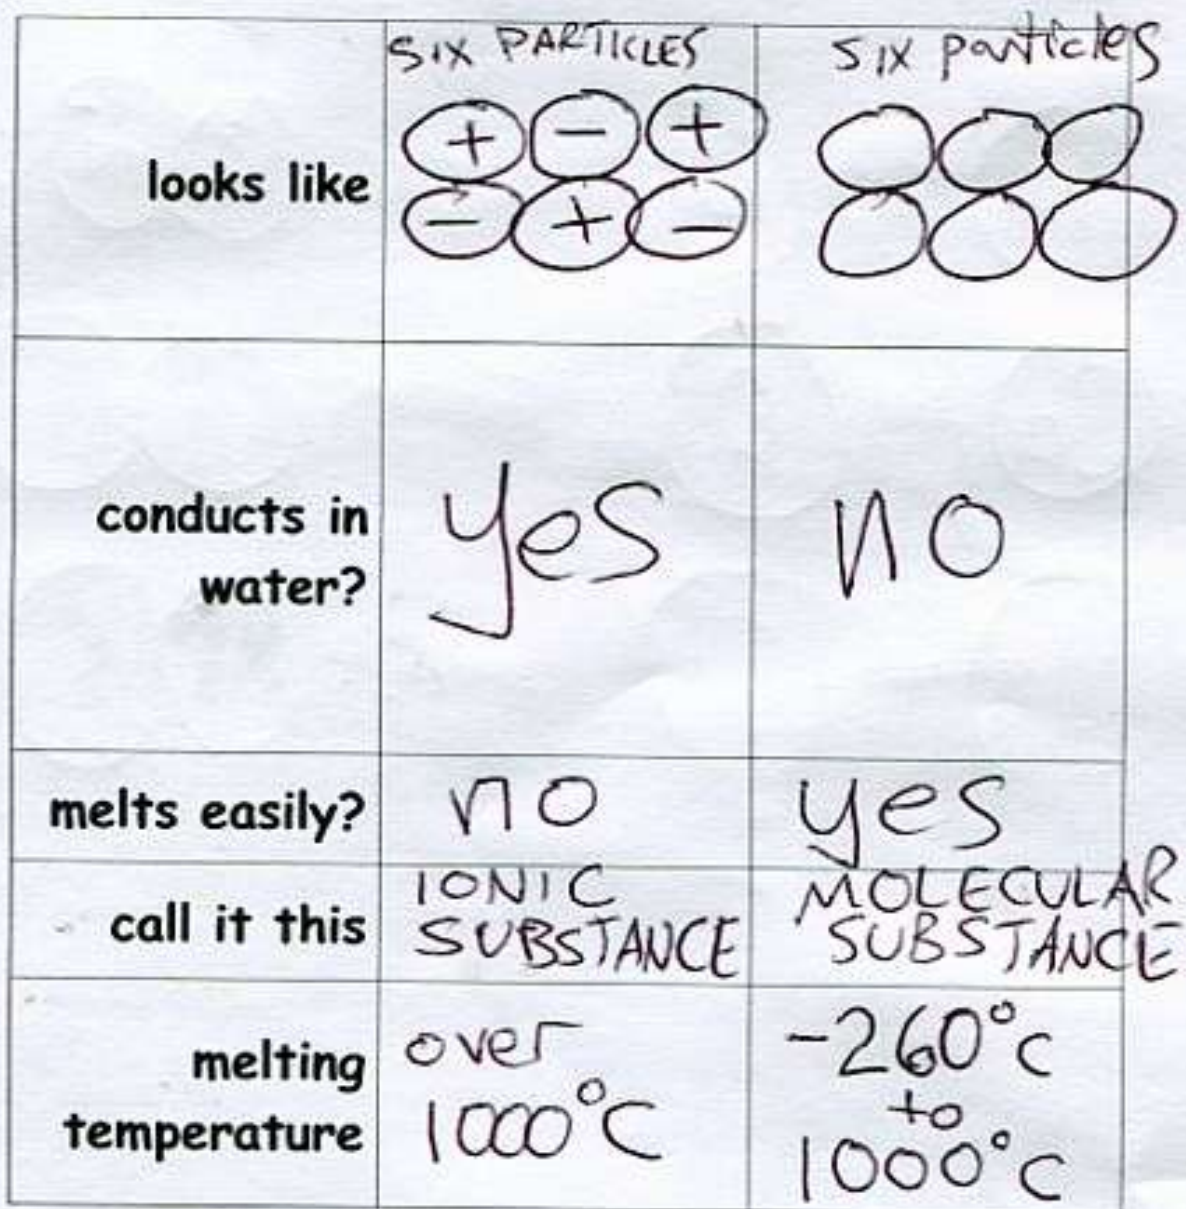 SIX PARTICLES
six particles
looks like
+ - +
- + -
conducts in
water?
yes
no
melts easily?
no
yes
call it this
IONIC
SUBSTANCE
MOLECULAR
SUBSTANCE
melting
temperature
over
1000°C
-260°C
to
1000°C